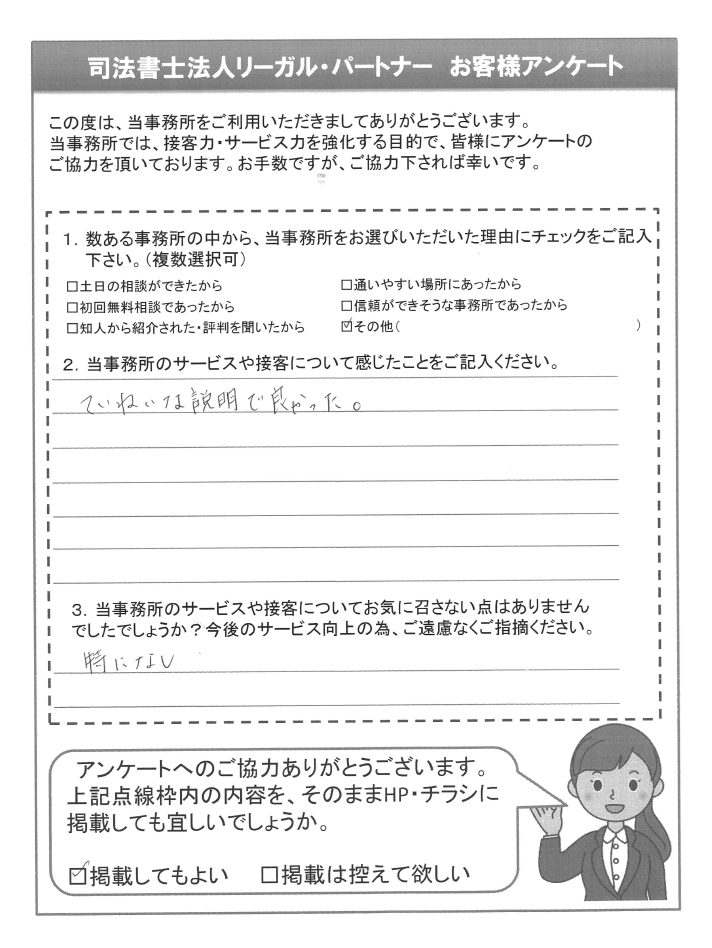 司法書士法人リーガル・パートナー　お客様アンケート
この度は、当事務所をご利用いただきましてありがとうございます。
当事務所では、接客力・サービス力を強化する目的で、皆様にアンケートの
ご協力を頂いております。お手数ですが、ご協力下されば幸いです。
１．数ある事務所の中から、当事務所をお選びいただいた理由にチェックをご記入
下さい。（複数選択可）
□土日の相談ができたから
□通いやすい場所にあったから
□初回無料相談であったから
□信頼ができそうな事務所であったから
□知人から紹介された・評判を聞いたから
☑その他（　　　　　　　　　　　　　　　）
２．当事務所のサービスや接客について感じたことをご記入ください。
ていねいな説明で良かった。
３．当事務所のサービスや接客についてお気に召さない点はありません
でしたでしょうか？今後のサービス向上の為、ご遠慮なくご指摘ください。
特になし
アンケートへのご協力ありがとうございます。
上記点線枠内の内容を、そのままHP・チラシに
掲載しても宜しいでしょうか。
☑掲載してもよい　□掲載は控えて欲しい